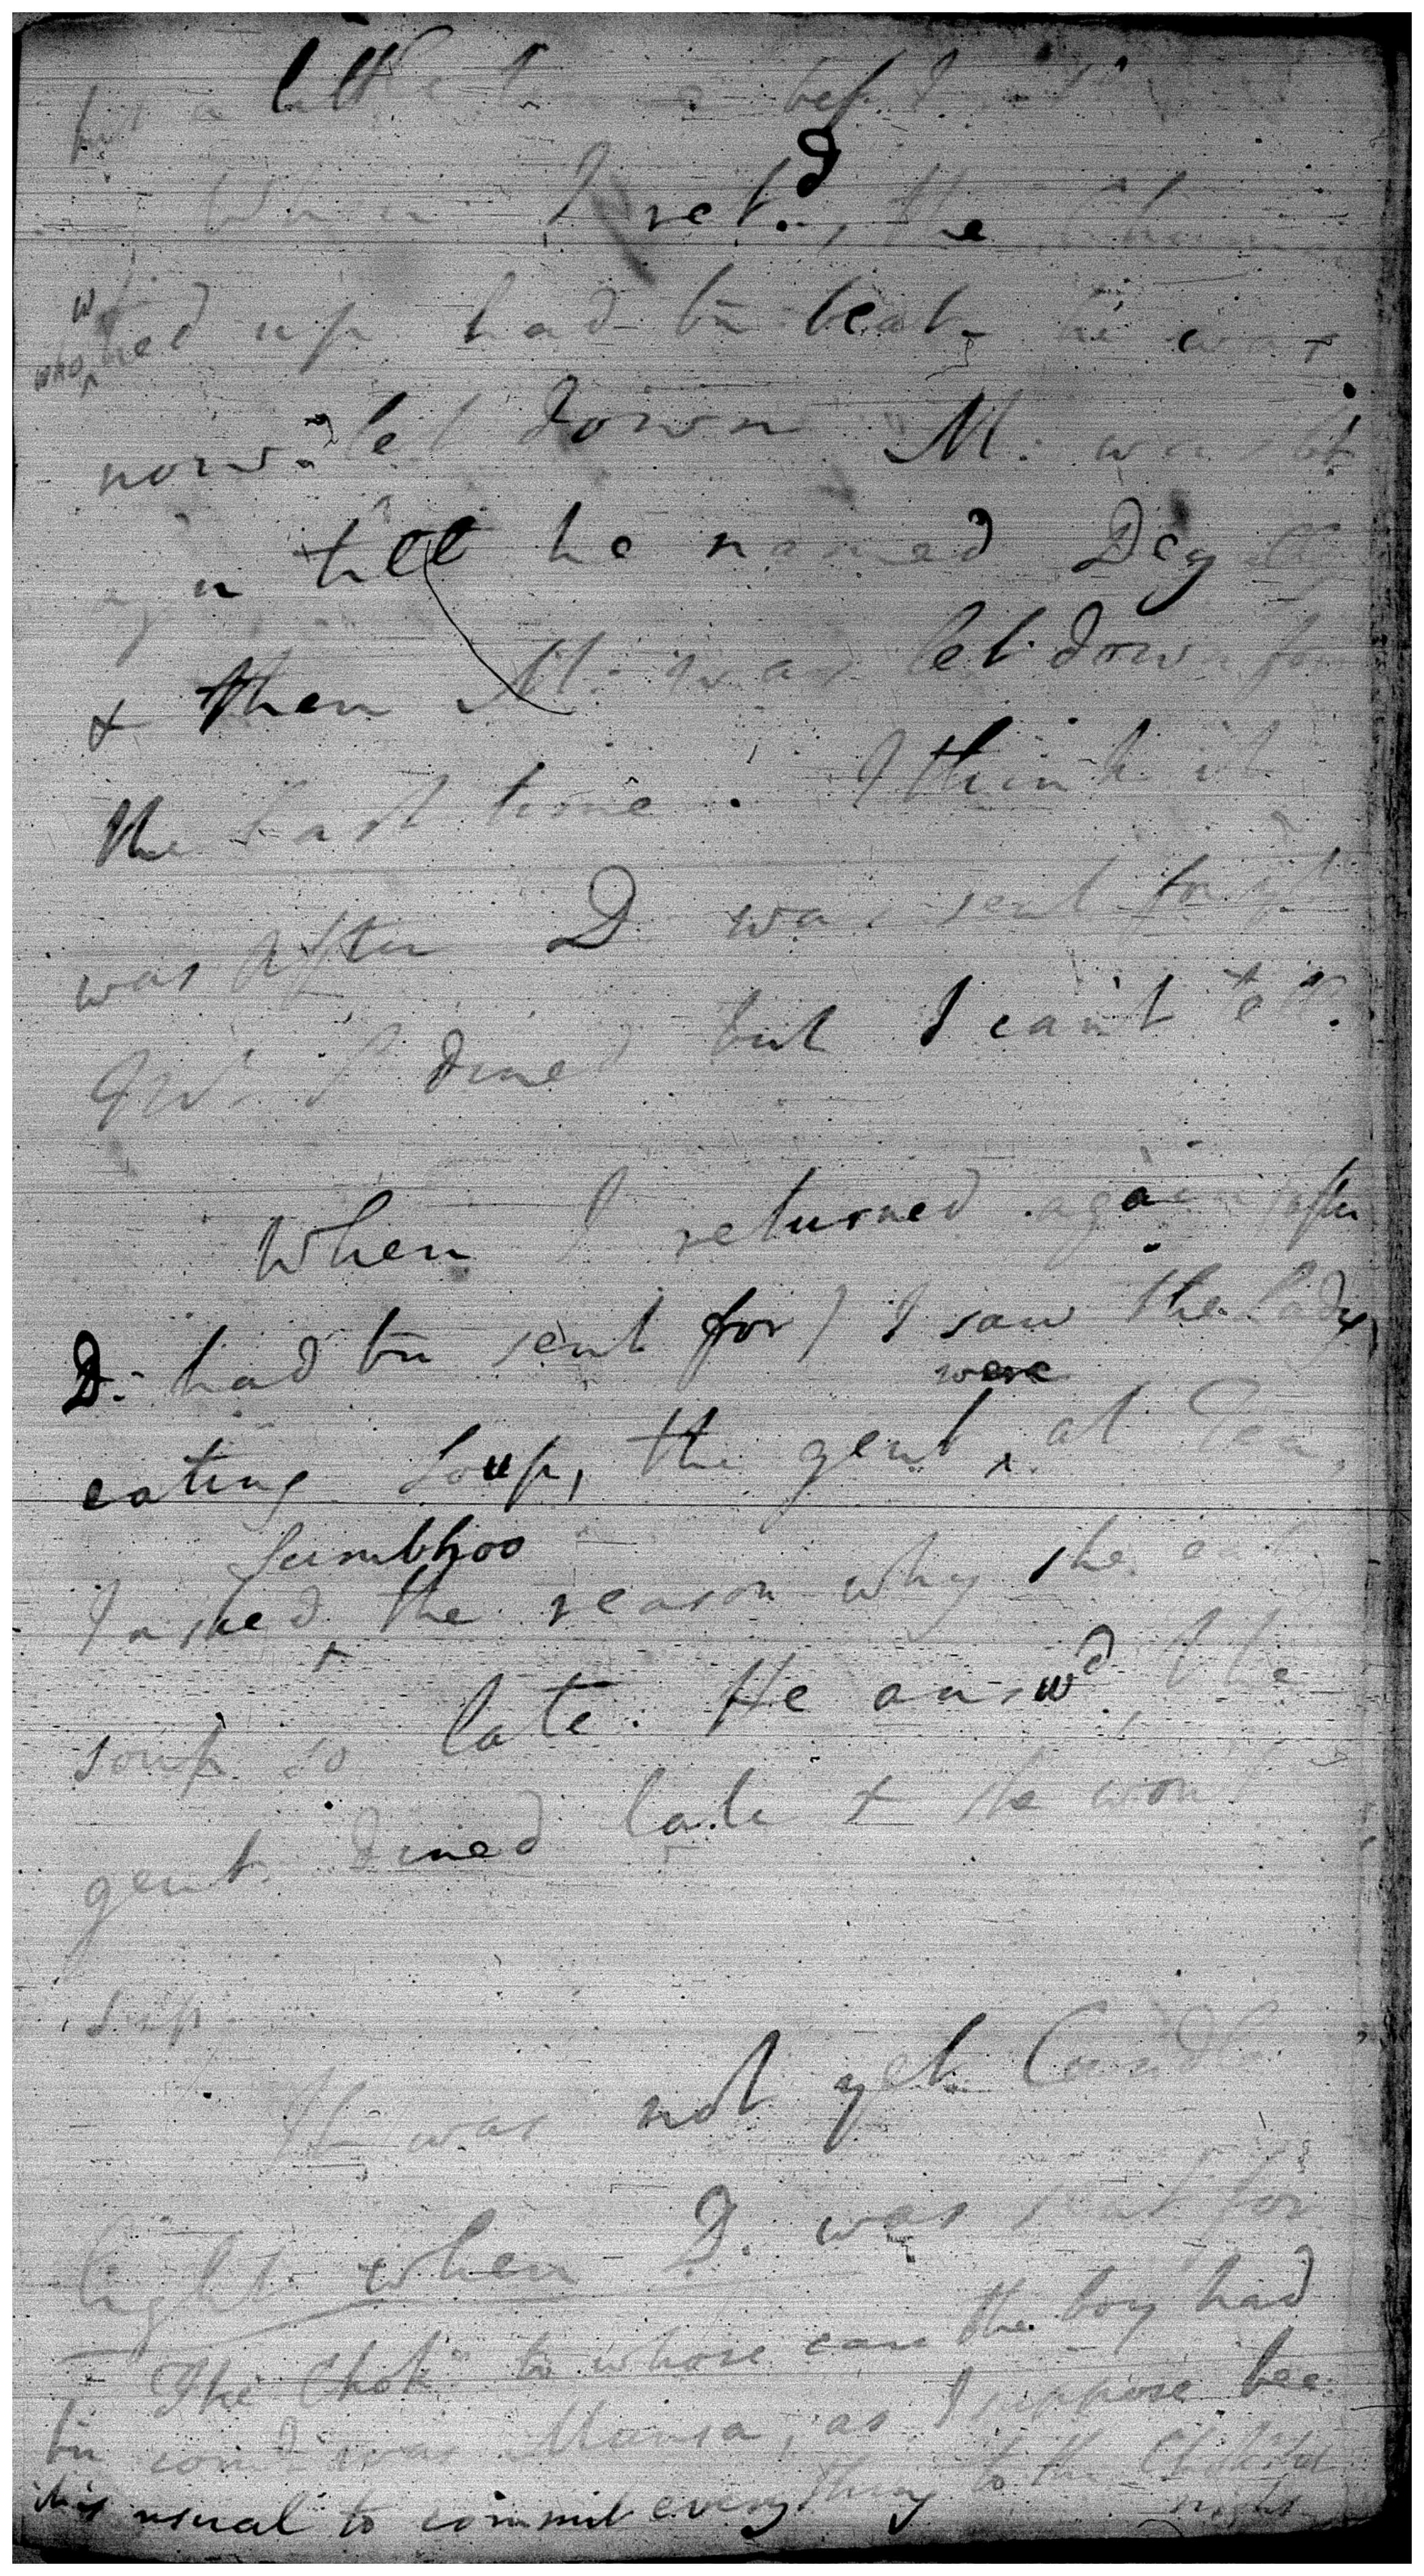 a little time bef. I
When I ret.d, the
who tied up had bn beat. he was
now let down M. was
agn till he named Dey
& then M. was let down for
the last time. I think it
was after D. was sent for
dined but I can't tell.
When I returned again after
D. had bn sent for) I saw the Lady
eating Soup, the gent were at Tea,
I asked Sumbhoo the reason why she eat
soup so late. He answd the
gent. dined late & she won't
sup.
It was not yet Candle
light when D. was sent for
The Chok to whose care the boy had
bn comd was Mansa, as I suppose bec.
it is usual to commit every thing to the
night